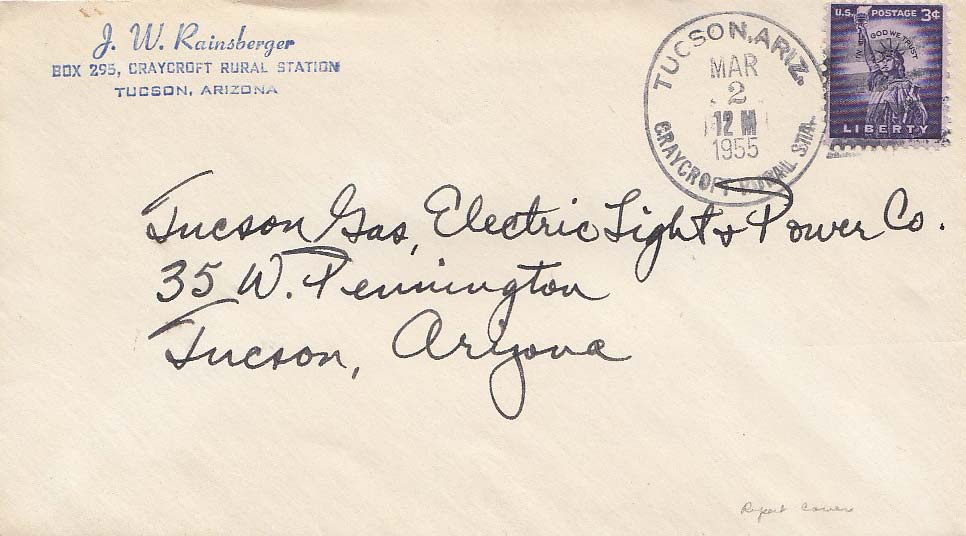 J. W. Rainsberger
BOX 295, CRAYCROFT RURAL STATION
TUCSON, ARIZONA
TUCSON, ARIZ.
MAR
2
12 M
1955
CRAYCROFT RURAL STA.
U.S. POSTAGE 3¢
IN GOD WE TRUST
LIBERTY
Tucson Gas, Electric Light & Power Co.
35 W. Pennington
Tucson, Arizona